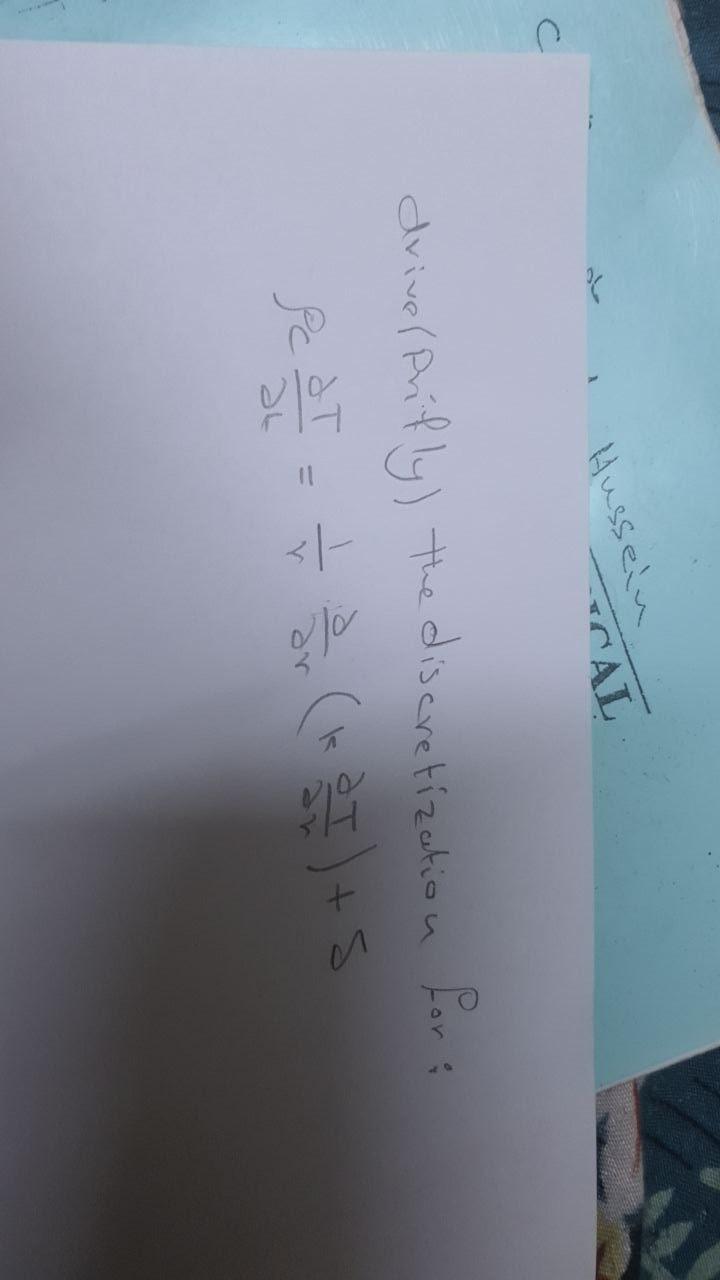 Hussein
drive(Prifly) the discretization for:
ρc ∂T/∂t = 1/r ∂/∂r (k ∂T/∂r) + S